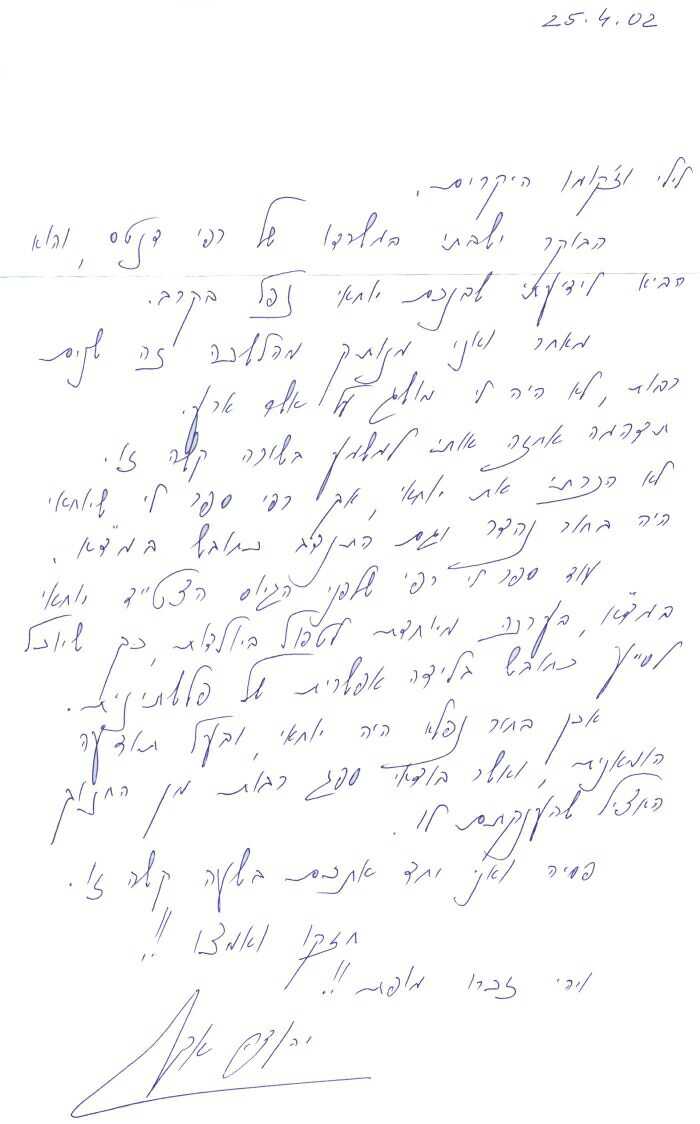 25.4.02
לילי וז'קומו היקרים,
הבוקר ישבתי במשרדו של רפי דנטס, והוא
הביא לידיעתי שבנכם יוחאי נפל בקרב.
מאחר ואני מנותק מהלשכה זה שנים
רבות, לא היה לי מושג על אשר ארע.
תדהמה אחזה אותי למשמע בשורה קשה זו.
לא הכרתי את יוחאי, אך רפי ספר לי שיוחאי
היה בחור נהדר וגם התנדב כחובש במד"א.
עוד ספר לי רפי שלפני הגיוס הצטייד יוחאי
במד"א, בערכה מיוחדת לטפול ביולדות, כך שיוכל
לסייע כחובש בלידה אפשרית של פלשתינית.
אכן בחור נפלא היה יוחאי, ובעל תודעה
הומאנית, ואשר בודאי ספג רבות מן החנוך
האציל שהענקתם לו.
ואני יחד אתכם בשעה קשה זו.
חזקו ואמצו!!
ויהי זכרו מופת!!
יהודה